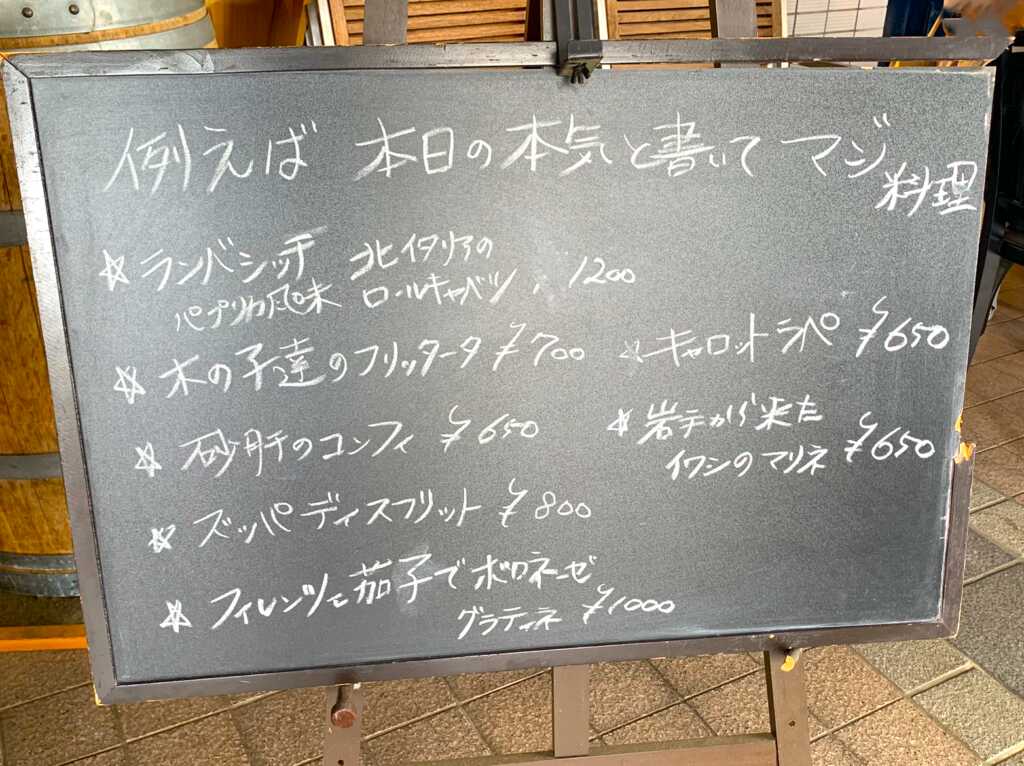 例えば 本日の本気と書いてマジ料理
☆ランバシッチ 北イタリアの
パプリカ風味 ロールキャベツ, 1200
☆木の子達のフリッタータ ¥700
☆キャロットラペ ¥650
☆砂肝のコンフィ ¥650
☆岩手から来た
イワシのマリネ ¥650
☆ズッパディスフリット ¥800
☆フィレンツェ茄子でボロネーゼ
グラティネ ¥1000